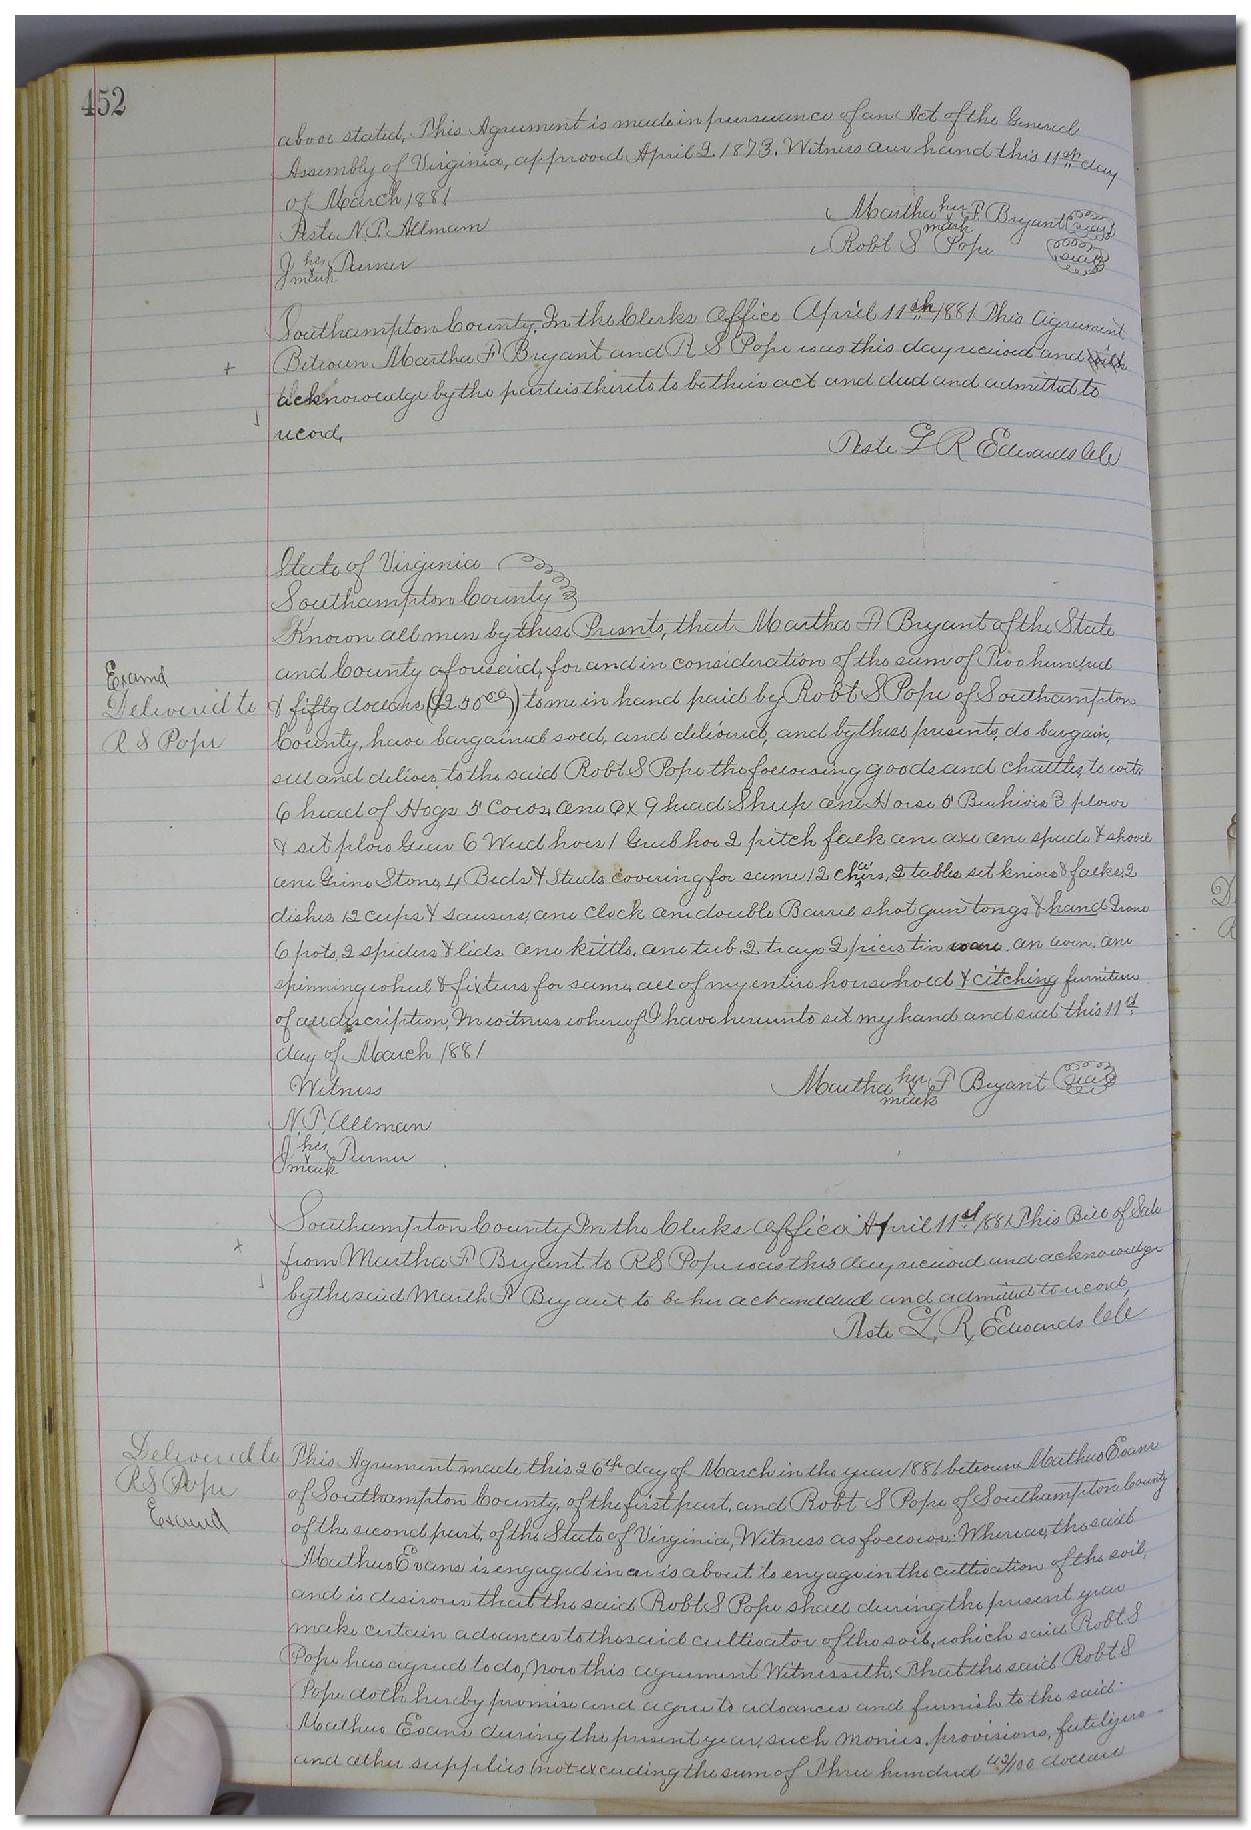 452
above stated, This Agrument is made in pursuance of an Act of the General
Assembly of Virginia, approved April 2 1873. Witness our hand this 11th day
of March 1881
Teste N. P. Allmam
J his mark Turner
Martha her mark F Bryant seal
Robt S Pope seal
Southampton County. In the Clerks Office April 11th 1881 This agrument
Between Martha F Bryant and R S Pope was this day recieved and
acknowledge by the parties thereto to be their act and deed and admitted to
record.
Teste L R Edwards ClC
State of Virginia
Southampton County
Known all men by these Presents, that Martha F Bryant of the State
and County aforesaid, for and in consideration of the sum of Two hundred
& fifty dollars ($250 00) to me in hand paid by Robt S Pope of Southampton
County, have bargained sold, and delivered, and by these presents, do bargain,
sell and deliver to the said Robt S Pope the following goods and chattles, to wit:
6 head of Hogs 5 Cows, one Ox 9 head Sheep one Horse 5 Beehives 3 plows
& set plow Gear 6 Weed hoes 1 Grub hoe 2 pitch folk one axe one spade & shovel
one Grine Stone, 4 Beds & Steads covering for same 12 chairs, 2 tables set knives & folks, 2
dishes 12 cups & sausers, one clock one double Barrel shot gun tongs & hand Irons
6 pots, 2 spiders & lids one kittle, one tub, 2 trays 2 pices tin ware, an oven, one
spinning wheel & fixters for same, all of my entire household & citching furniture
of all discription, In witness whereof I have hereunto set my hand and seal this 11th
day of March 1881
Witness
N. P. Allman
J his mark Turner
Martha her mark F Bryant seal
Southampton County In the Clerks Office April 11th 1881 This Bill of Sale
from Martha F Bryant to R S Pope was this day recieved and acknowledge
by the said Marth F Bryant to be her act and deed and admitted to record,
Teste L, R, Edwards ClC
Examd
Delivered to
R S Pope
Delivered to
R S Pope
Examd
This Agrument made this 26th day of March in the year 1881 between Mathus Evans
of Southampton County, of the first part, and Robt S Pope of Southampton County
of the second part, of the State of Virginia, Witness as follows: Whereas, the said
Mathus Evans is engaged in or is about to engage in the cultivation of the soil,
and is desirous that the said Robt S Pope shall during the present year
make certain advances to the said cultivator of the soil, which said Robt S
Pope has agreed to do, Now this agrument Witnesseth: That the said Robt S
Pope doth hereby promise and agree to advance and furnish to the said
Mathus Evans during the present year, such monies, provisions, futilizers
and other supplies (not exceeding the sum of Three hundred 42/100 dollars